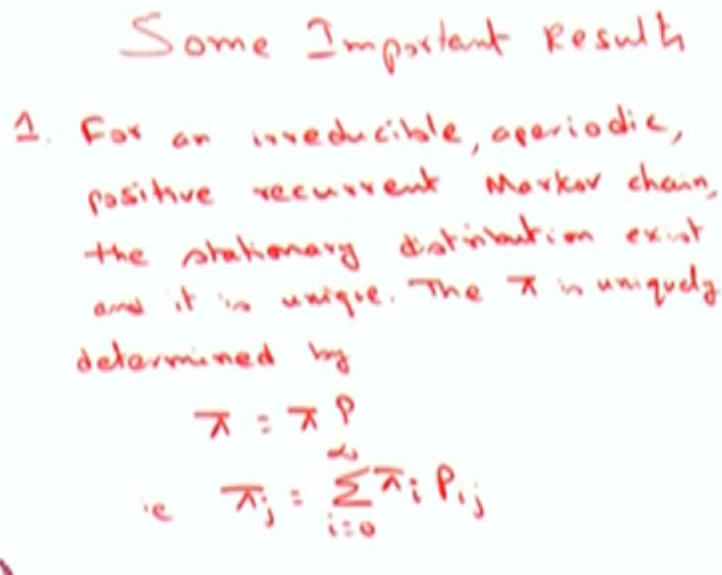 Some Important Results
1. For an irreducible, aperiodic,
positive recurrent Markov chain,
the stationary distribution exist
and it is unique. The π is uniquely
determined by
π = π P
ie π_j = ∑_{i=0}^{∞} π_i P_{ij}